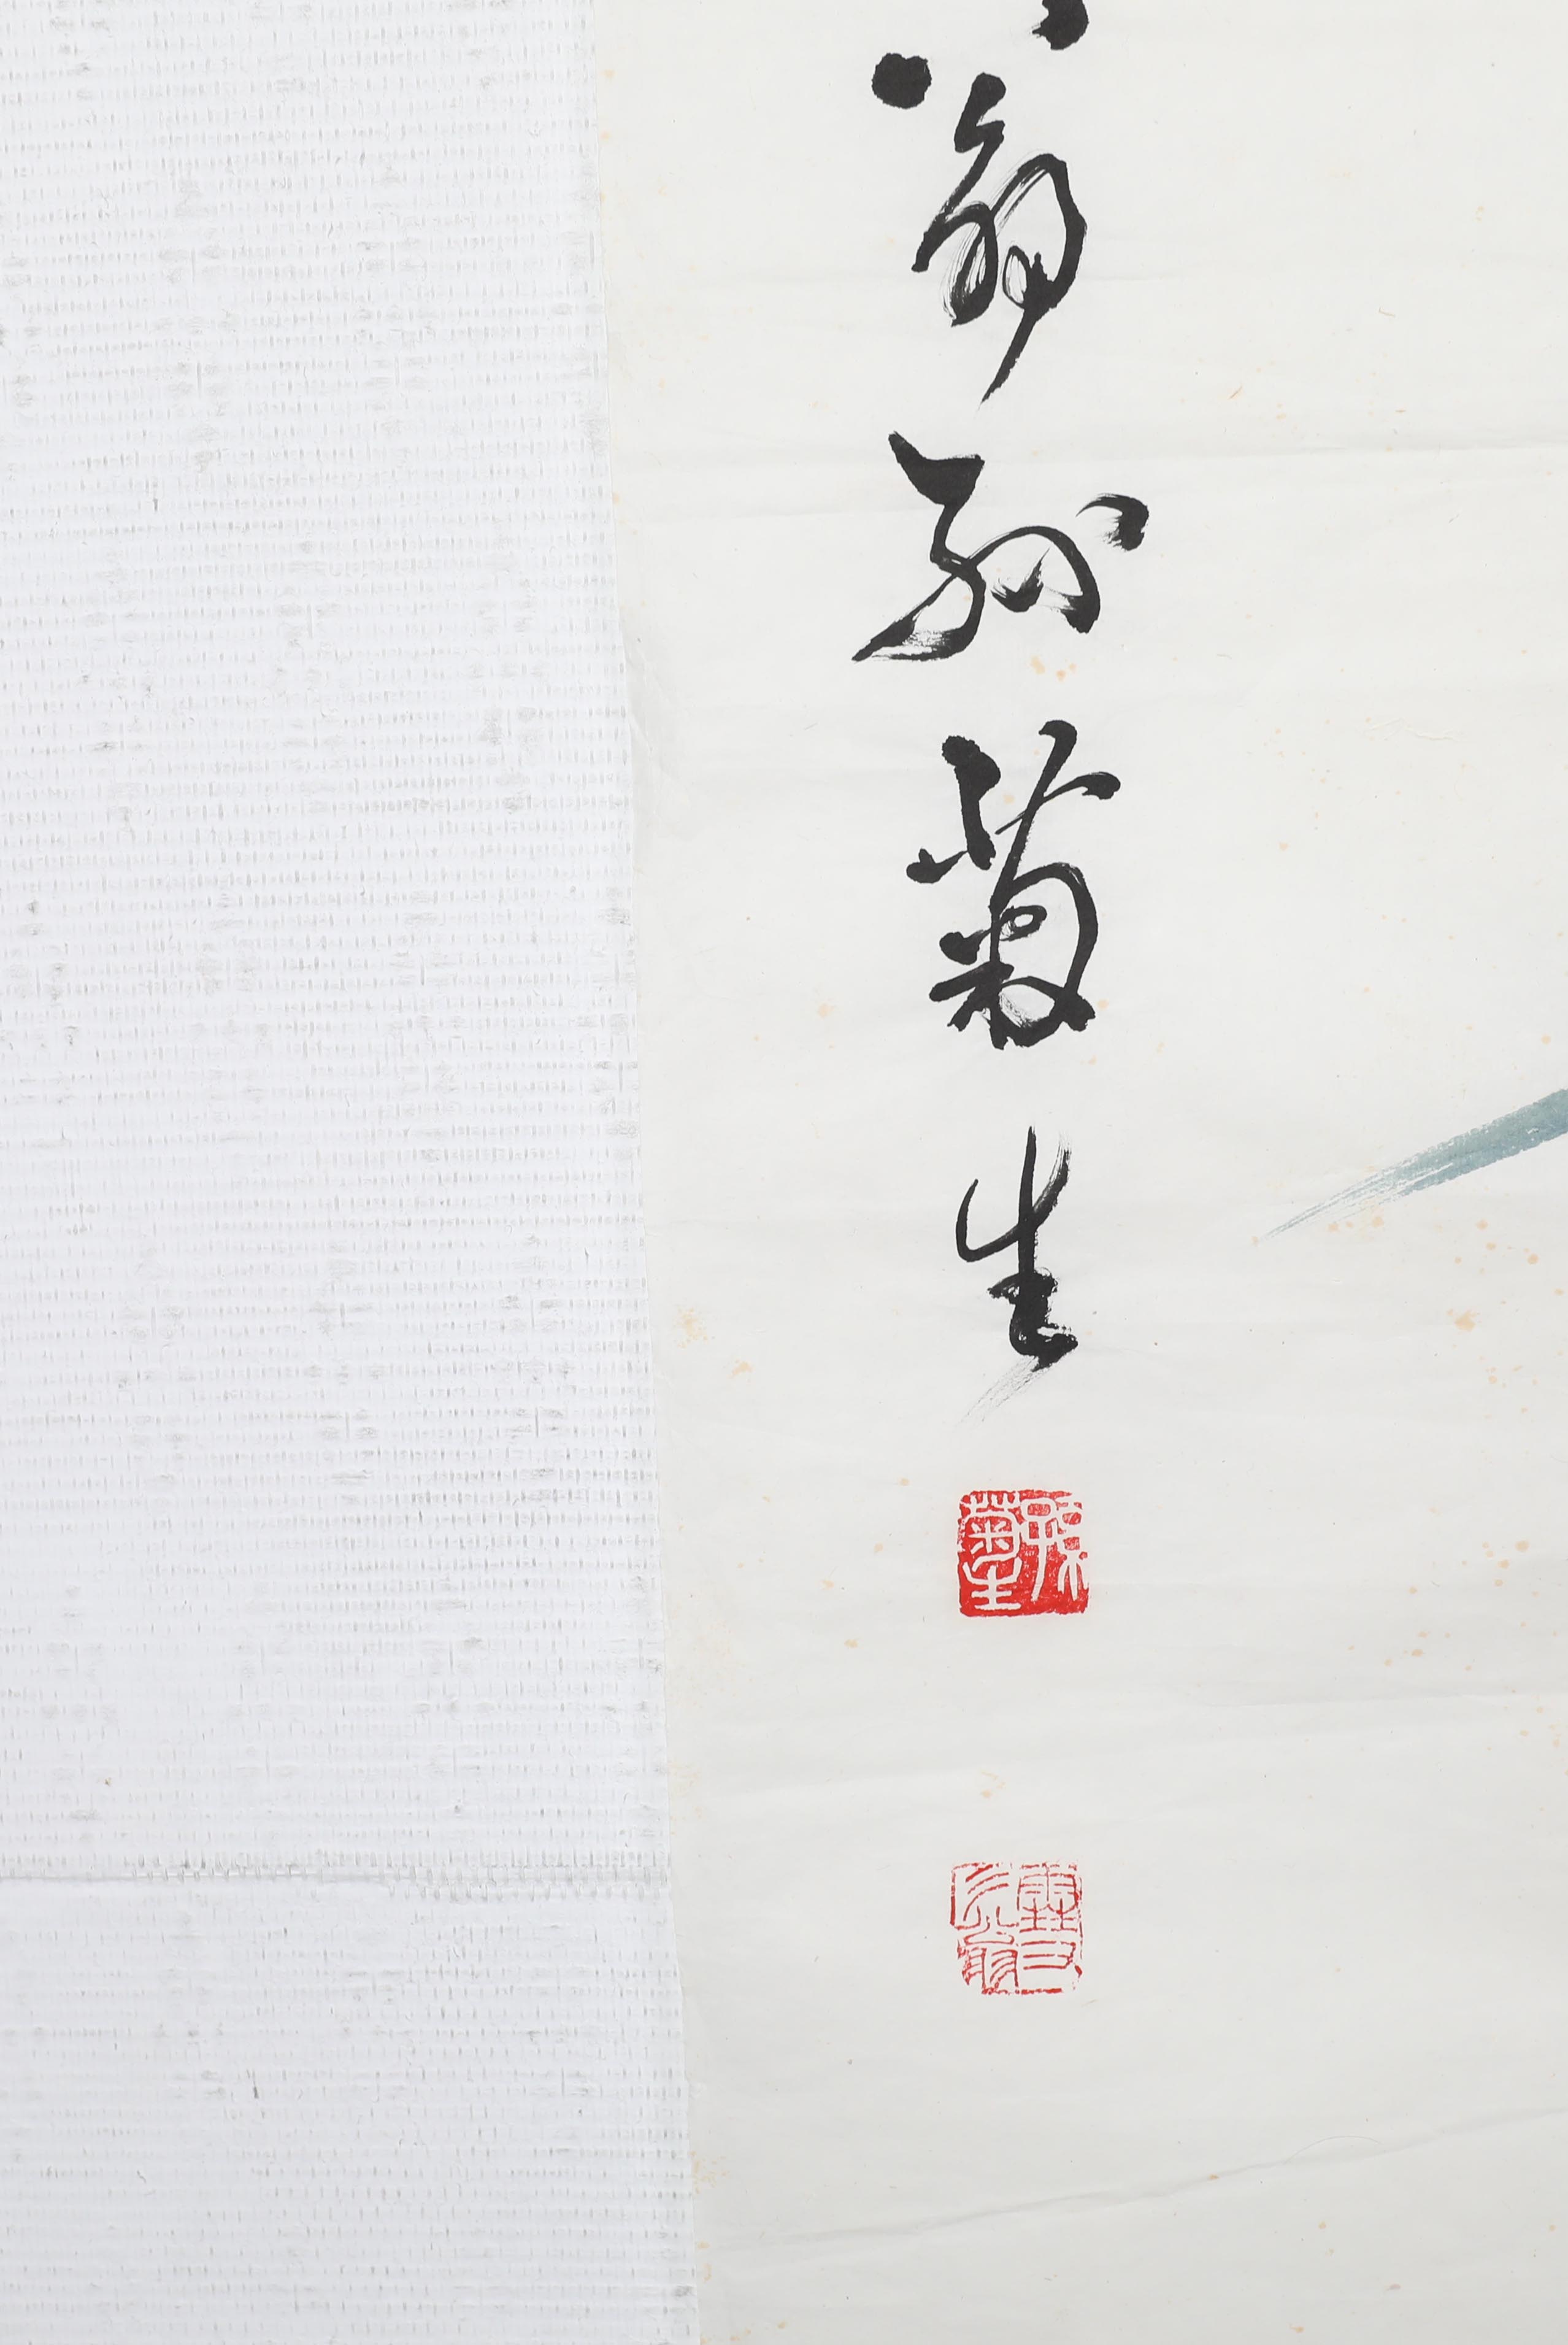 翁孫菊生
孫菊生